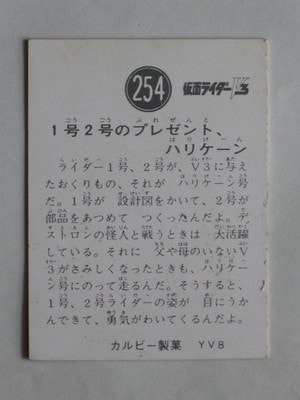 254
仮面ライダーV3
1号2号のプレゼント、
ハリケーン
ライダー1号、2号が、V3に与え
たおくりもの、それが ハリケーン号
だ。1号が 設計図をかいて、2号が
部品をあつめて つくったんだよ。デ
ストロンの怪人と戦うときは 大活躍
している。それに 父や母のいないV
3がさみしくなったときも、ハリケー
ン号にのって走るんだ。そうすると、
1号、2号ライダーの姿が 目にうか
んできて、勇気がわいてくるんだよ。
カルビー製菓 YV8